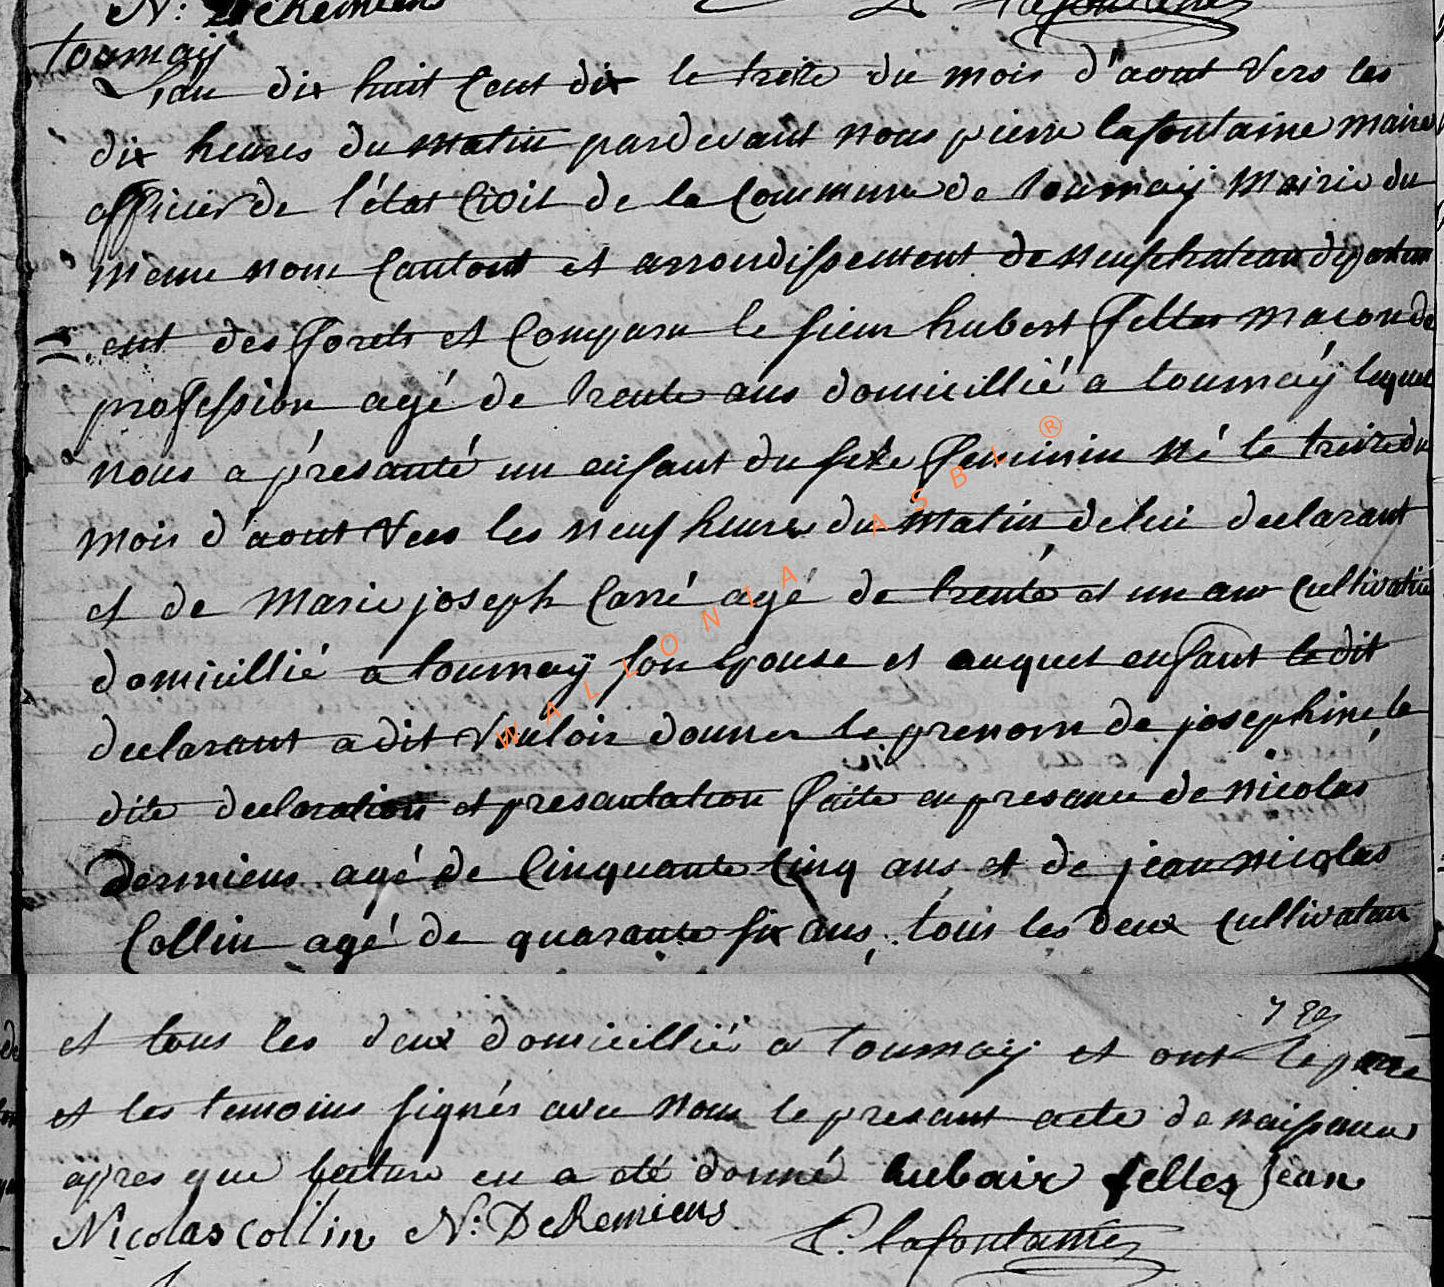 N: DeRemiens
Lafontaine
tournay
L'an dix huit Cent dix le treize du mois d'aout Vers les
dix heures du matin pardevant nous pierre lafontaine maire
officier de l'état Civil de la Commune de tournay Mairie du
même nom Cantont et arrondissement de neufchateau departem
ent des forets et Comparu le sieur hubert felter macon de
profession agé de trente ans domicillié a tournay lequel
nous a présanté un enfant du sexe feminin né le treize du
mois d'aout Vers les neuf heures du matin de lui declarant
et de Marie joseph Carré agé de trente et un ans Cultivatric
domicillié a tournay son Epouse et auquel enfant le dit
declarant a dit Vouloir donner le prenom de josephine, la
dite declaration et presantation faite en presance de nicolas
dermiens agé de Cinquante Cinq ans et de jean nicolas
Collin agé de quarante six ans, tous les deux Cultivateur
et tous les deux domicillié a tournay et ont le pere
et les temoins signés avec nous le presant acte de naissance
apres que lecture en a eté donné hubair feller jean
Nicolas Collin N: DeRemiens P: lafontaine
WALLONIA ASBL ®